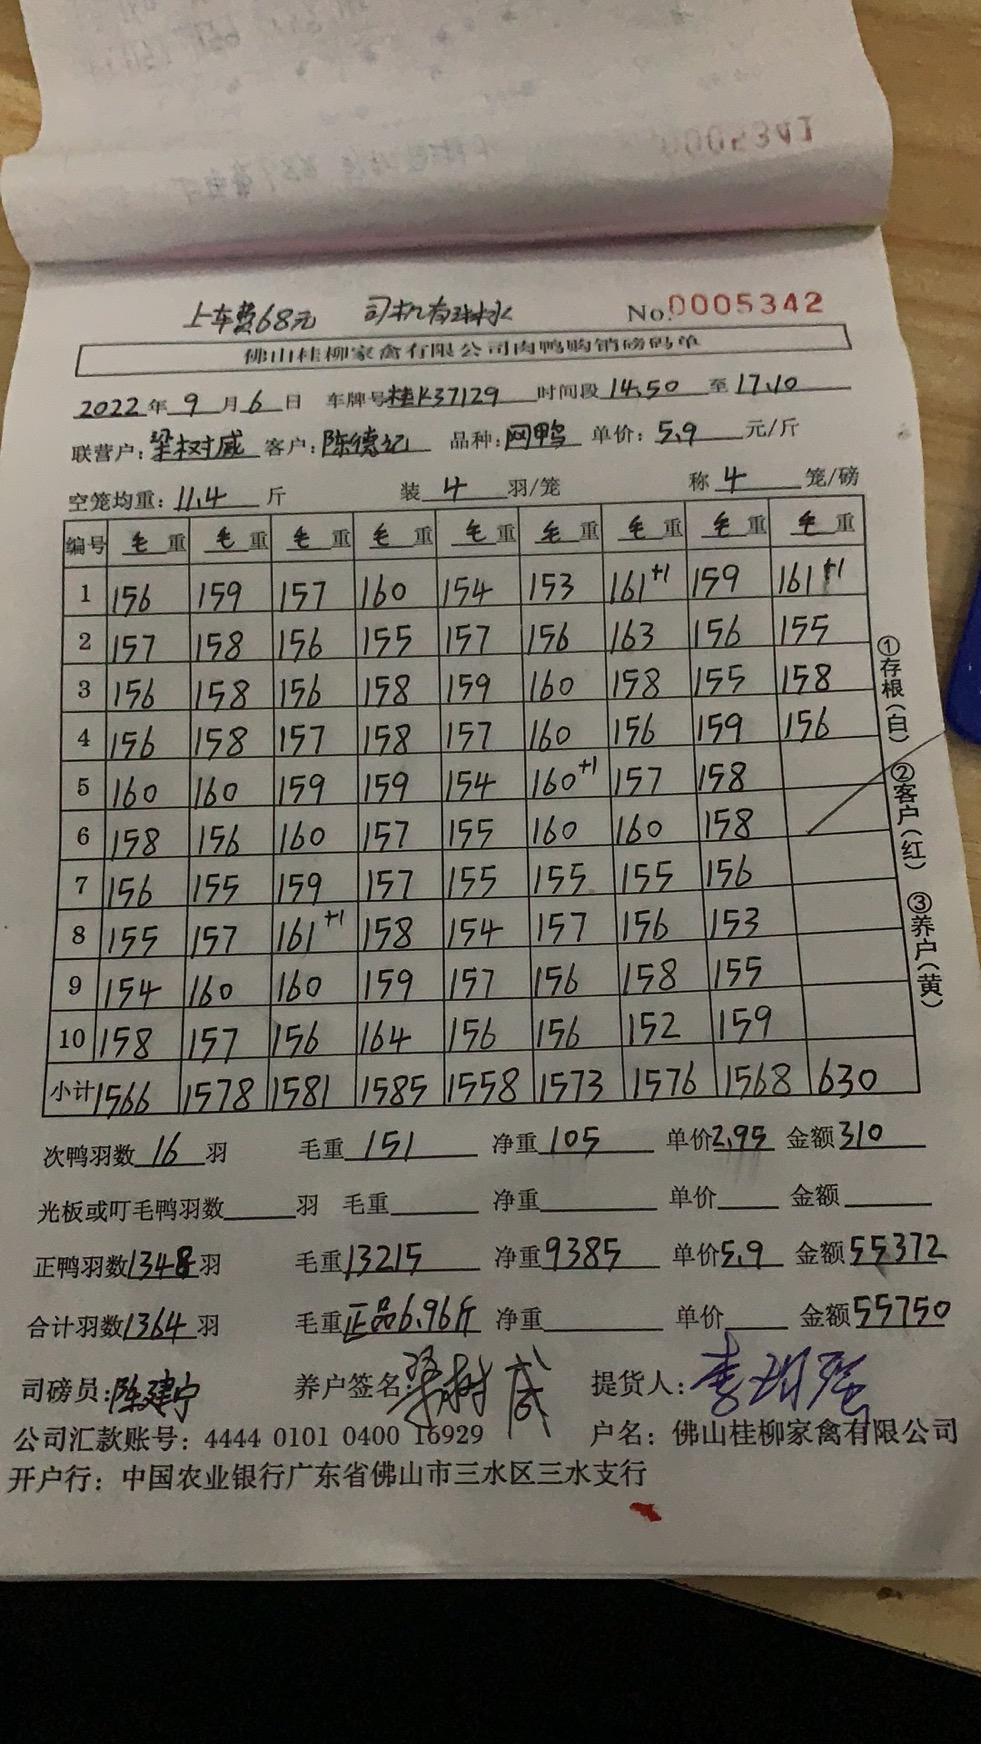 0005341
上车费68元 司机有淋水 No.0005342
佛山桂柳家禽有限公司肉鸭购销磅码单
2022年9月6日 车牌号桂K37129 时间段14.50至17.10
联营户:梁树威 客户:陈德记 品种:网鸭 单价:5.9元/斤
空笼均重:11.4斤 装4羽/笼 称4笼/磅
编号 毛重 毛重 毛重 毛重 毛重 毛重 毛重 毛重 毛重
1 156 159 157 160 154 153 161+1 159 161+1
2 157 158 156 155 157 156 163 156 155
3 156 158 156 158 159 160 158 155 158
4 156 158 157 158 157 160 156 159 156
5 160 160 159 159 154 160+1 157 158
6 158 156 160 157 155 160 160 158
7 156 155 159 157 155 155 155 156
8 155 157 161+1 158 154 157 156 153
9 154 160 160 159 157 156 158 155
10 158 157 156 164 156 156 152 159
小计 1566 1578 1581 1585 1558 1573 1576 1568 630
①存根(白) ②客户(红) ③养户(黄)
次鸭羽数16羽 毛重151 净重105 单价2.95 金额310
光板或叮毛鸭羽数 羽 毛重 净重 单价 金额
正鸭羽数1348羽 毛重13215 净重9385 单价5.9 金额55372
合计羽数1364羽 毛重正品6.96斤 净重 单价 金额55750
司磅员:陈建宁 养户签名:梁树威 提货人:
公司汇款账号:4444 0101 0400 16929 户名:佛山桂柳家禽有限公司
开户行:中国农业银行广东省佛山市三水区三水支行